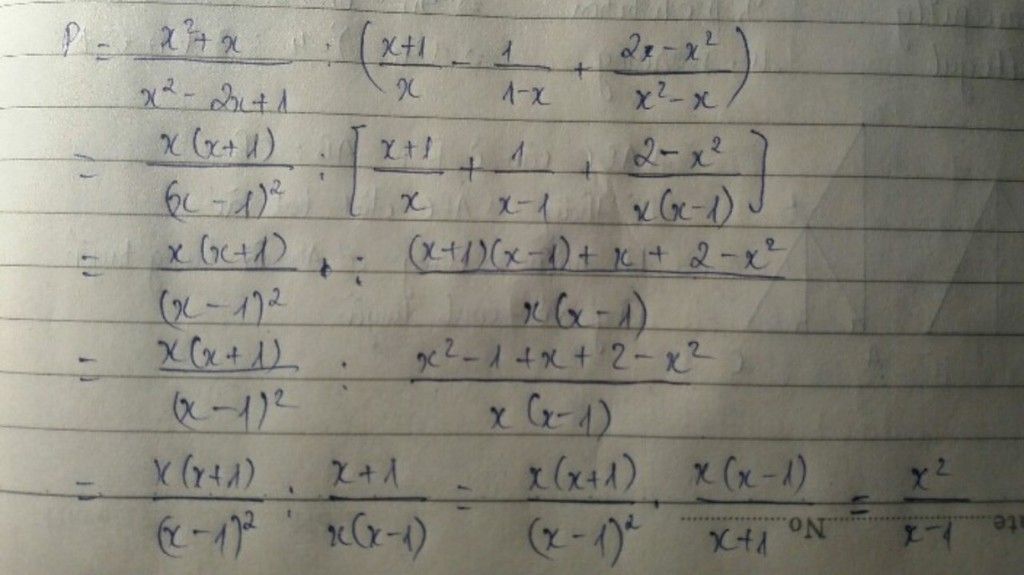 P = \frac{x^2+x}{x^2-2x+1} : \left(\frac{x+1}{x} - \frac{1}{1-x} + \frac{2x-x^2}{x^2-x}\right)
= \frac{x(x+1)}{(x-1)^2} : \left[\frac{x+1}{x} + \frac{1}{x-1} + \frac{2-x^2}{x(x-1)}\right]
= \frac{x(x+1)}{(x-1)^2} : \frac{(x+1)(x-1)+x+2-x^2}{x(x-1)}
= \frac{x(x+1)}{(x-1)^2} : \frac{x^2-1+x+2-x^2}{x(x-1)}
= \frac{x(x+1)}{(x-1)^2} : \frac{x+1}{x(x-1)} = \frac{x(x+1)}{(x-1)^2} \cdot \frac{x(x-1)}{x+1} = \frac{x^2}{x-1}
No